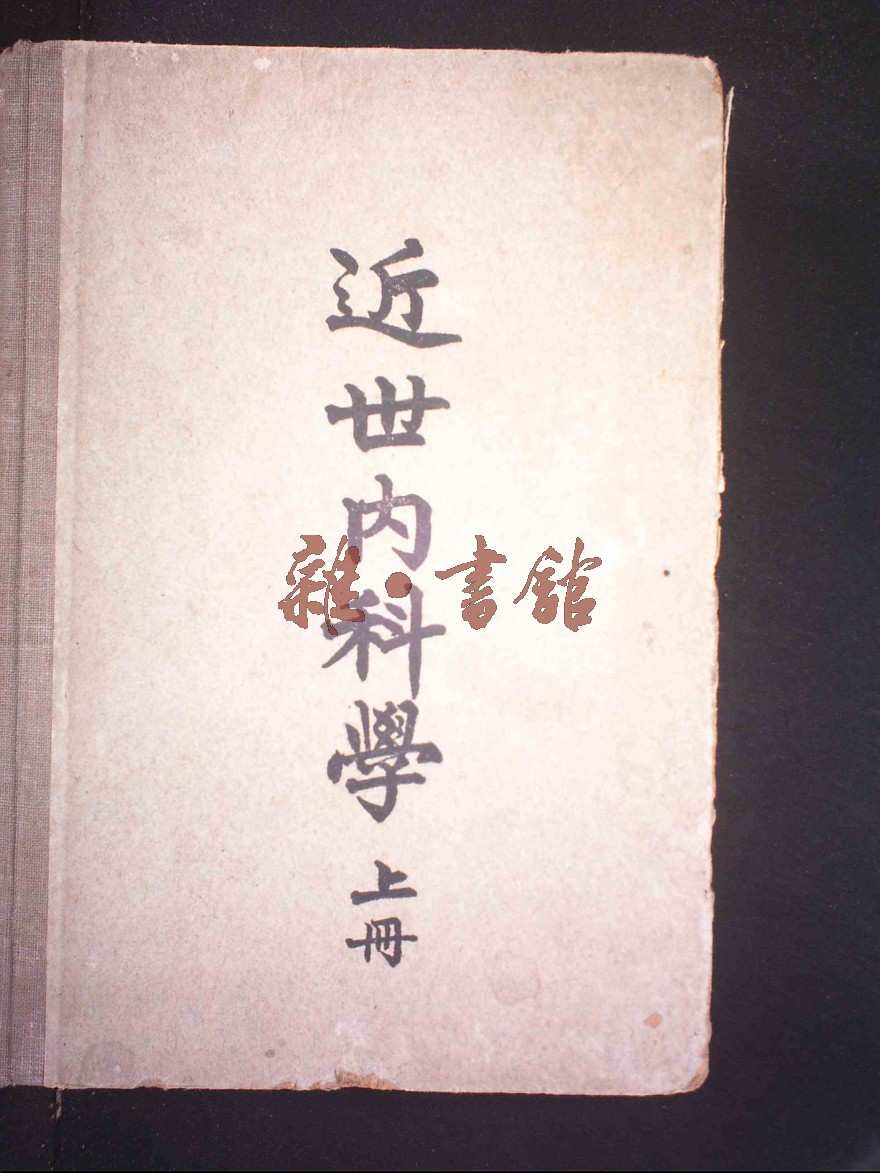 近世内科學
上冊
雜·書館